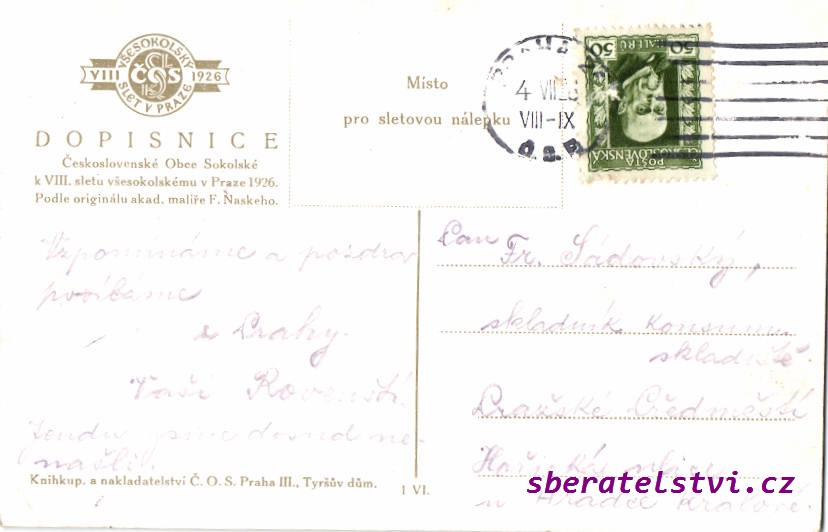 VŠESOKOLSKÝ
VIII ČOS 1926
SLET V PRAZE
DOPISNICE
Československé Obce Sokolské
k VIII. sletu všesokolskému v Praze 1926.
Podle originálu akad. malíře F. Naskeho.
Místo
pro sletovou nálepku
4 VII
VIII-IX
ČSP
50 HALÉŘŮ 50
POŠTA
ČESKOSLOVENSKÁ
Vzpomínáme a pozdrav
posíláme
z Prahy.
Vaši Rovenští.
Jendu jsme dosud ne-
našli.
Pan
Fr. Sádovský,
skladník konsum.
skladiště
Pražské Předměstí
Hořická ulice
u Hradce Králové.
Knihkup. a nakladatelství Č. O. S. Praha III., Tyršův dům.
1 VI.
sberatelstvi.cz